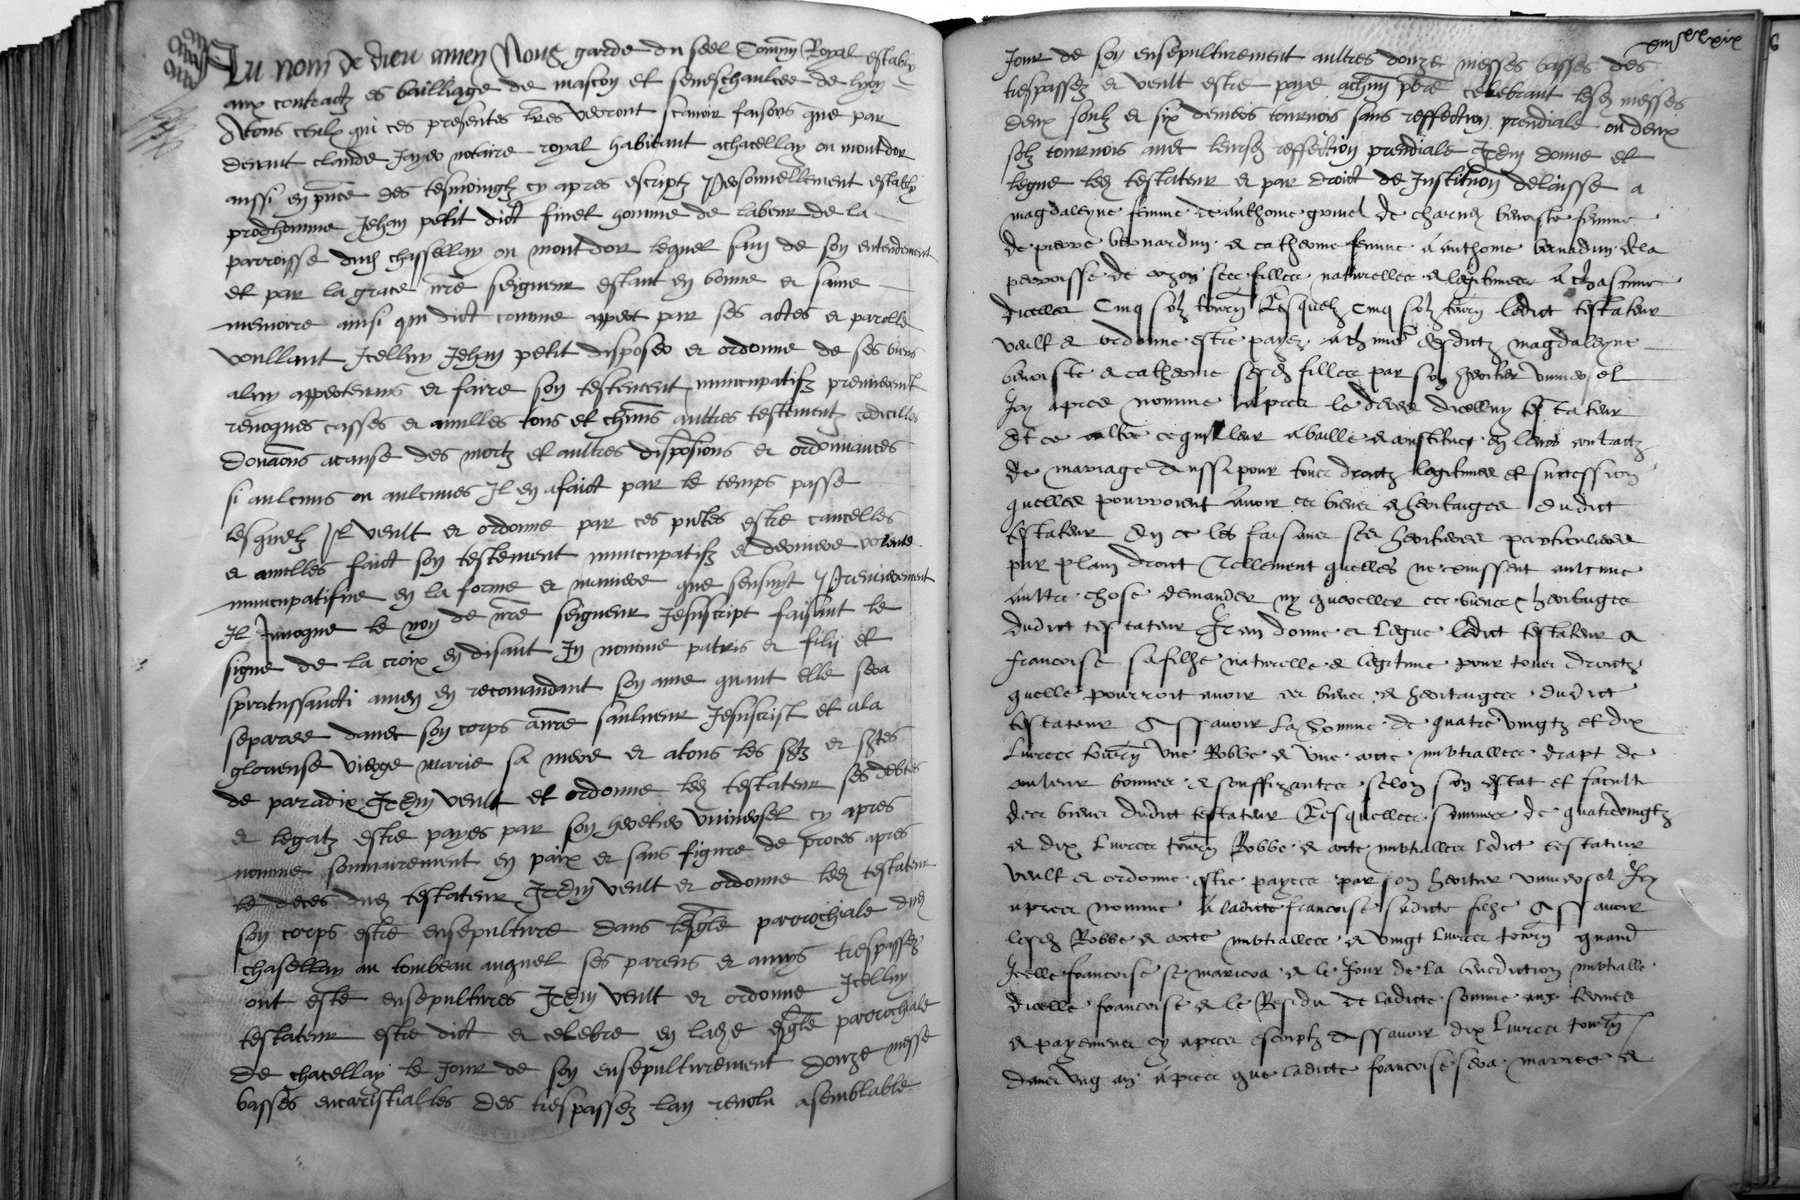 Au nom de dieu amen Nous garde du seel Commun Royal estably
aux contractz es bailliage de mascon et seneschaulcee de lyon
Atous ceulx qui ces presentes lres verront scavoir faisons que par
devant claude Jayes notaire royal habitant achacellay on montdor
aussi en pnce des tesmoingtz cy apres escriptz Personnellement estably
prodhomme Jehan petit dict finet homme de labeur de la
parroisse dud chassellay on mont dor lequel sain de son entendement
et par la grace nre seigneur estant en bonne et saine
memoire ainsi quil dict comme appert par ses actes et parolles
voullant Icelluy Jehan petit disposer et ordonne de ses biens
aluy appertenans et faire son testement nuncupatifz premierement
revoques casses et anulles tous et chuns aultres testementz codicilles
Donaons acause des mortz et aultres disposions et ordonnances
si aulcuns ou aulcunes Il en afaict par le temps passe
lesquelz Il veult et ordonne par ces pntes estre cancelles
et anulles faict son testement nuncupatifz et derniere volunte
nuncupatifve en la forme et maniere que sensuyt Premierement
Il Invoque le nom de nre seigneur Jesuscript faisant le
signe de la croix en disant In nomine patris et filii et
spiritussancti amen en recomandant son ame quant elle sera
separee davec son corps anre saulveur Jesuscrist et ala
glorieuse vierge marie sa mere et atous les sctz et sctes
de paradix Item veult et ordonne led testateur ses debtes
et legatz estre payes par son heretier universel cy apres
nomme sommairement en paix et sans figure de proces apres
le deces dud testateur Item veult et ordonne led testateur
son corps estre ensepulture dans lesglé parrochiale dud
chasellay au tombeau auquel ses parens et amys trespassez
ont esté ensepultures Item veult et ordonne Icelluy
testateur estre dict et celebre en lade esglé parrochiale
de chacellay le jour de son ensepulturement douze messe
basses encaristialles des trespassez lan revolu asemblable
xiiii xx xix
Jour de son ensepulturement aultres douze messes basses des
trespassez et veult estre paye achun pbre celebrant lesd messes
deux soulz et six deniers tournois sans reffection prendiale ou deux
solz tournois avec leursd reffection prendiale Item donne et
legue led testateur et par droict de Institution delaisse a
magdaleyne femme de anthome de charnez benoiste femme
de pierre bernardin et catherine femme a anthome bernardin dela
perroisse de ses filles naturelles et legitimes A chascune
dicelles Cinq solz tourn Lesquelz Cinq solz tourn ledict testateur
veult et ordonne estre payez a chune desdictz magdaleyne
benoiste et catherine sesd filles par son heritier universel
Icy apres nomme apres le deces dicelluy testateur
Et ce oultre ce quil leur a baille et constitue en leurs contractz
de mariage Aussi pour tous droictz legitimes et succession
quelles pourroient avoir es biens et heritaiges dudict
testateur En ce les faisant ses heritieres particulieres
par plain droict Tellement quelles ne puissent aulcune
aultre chose demander ny quereller es biens et heritaiges
dudict testateur Item donne et legue ledict testateur a
francoise sa filhe naturelle et legitime pour tous droictz
quelle pourroit avoir es biens et heritaiges dudict
testateur Assavoir la somme de quatre vingtz et dix
livres tourn une Robbe et une cotte nubtialles drapt de
couleur bonnes et souffizantes selon son estat et faculte
des biens dudict testateur Lesquelles sommes de quatrevingtz
et dix livres tourn Robbe et cotte nubtialles ledict testateur
veult et ordonne estre payees par son heritier universel Icy
apres nomme a ladicte francoise sadicte filhe Assavoir
lesd Robbe et cotte nubtialles et vingt livres tourn quand
Icelle francoise se mariera et le Jour de la benediction nubtialle
dicelle francoise et le Residu de ladicte somme aux termes
et payemens cy apres escriptz Assavoir dix livres tourn
dans ung an apres que ladicte francoise sera mariee et